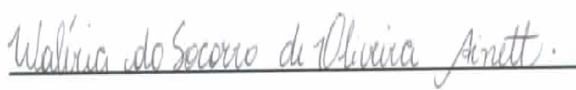 Walíria do Socorro de Oliveira Ainett.